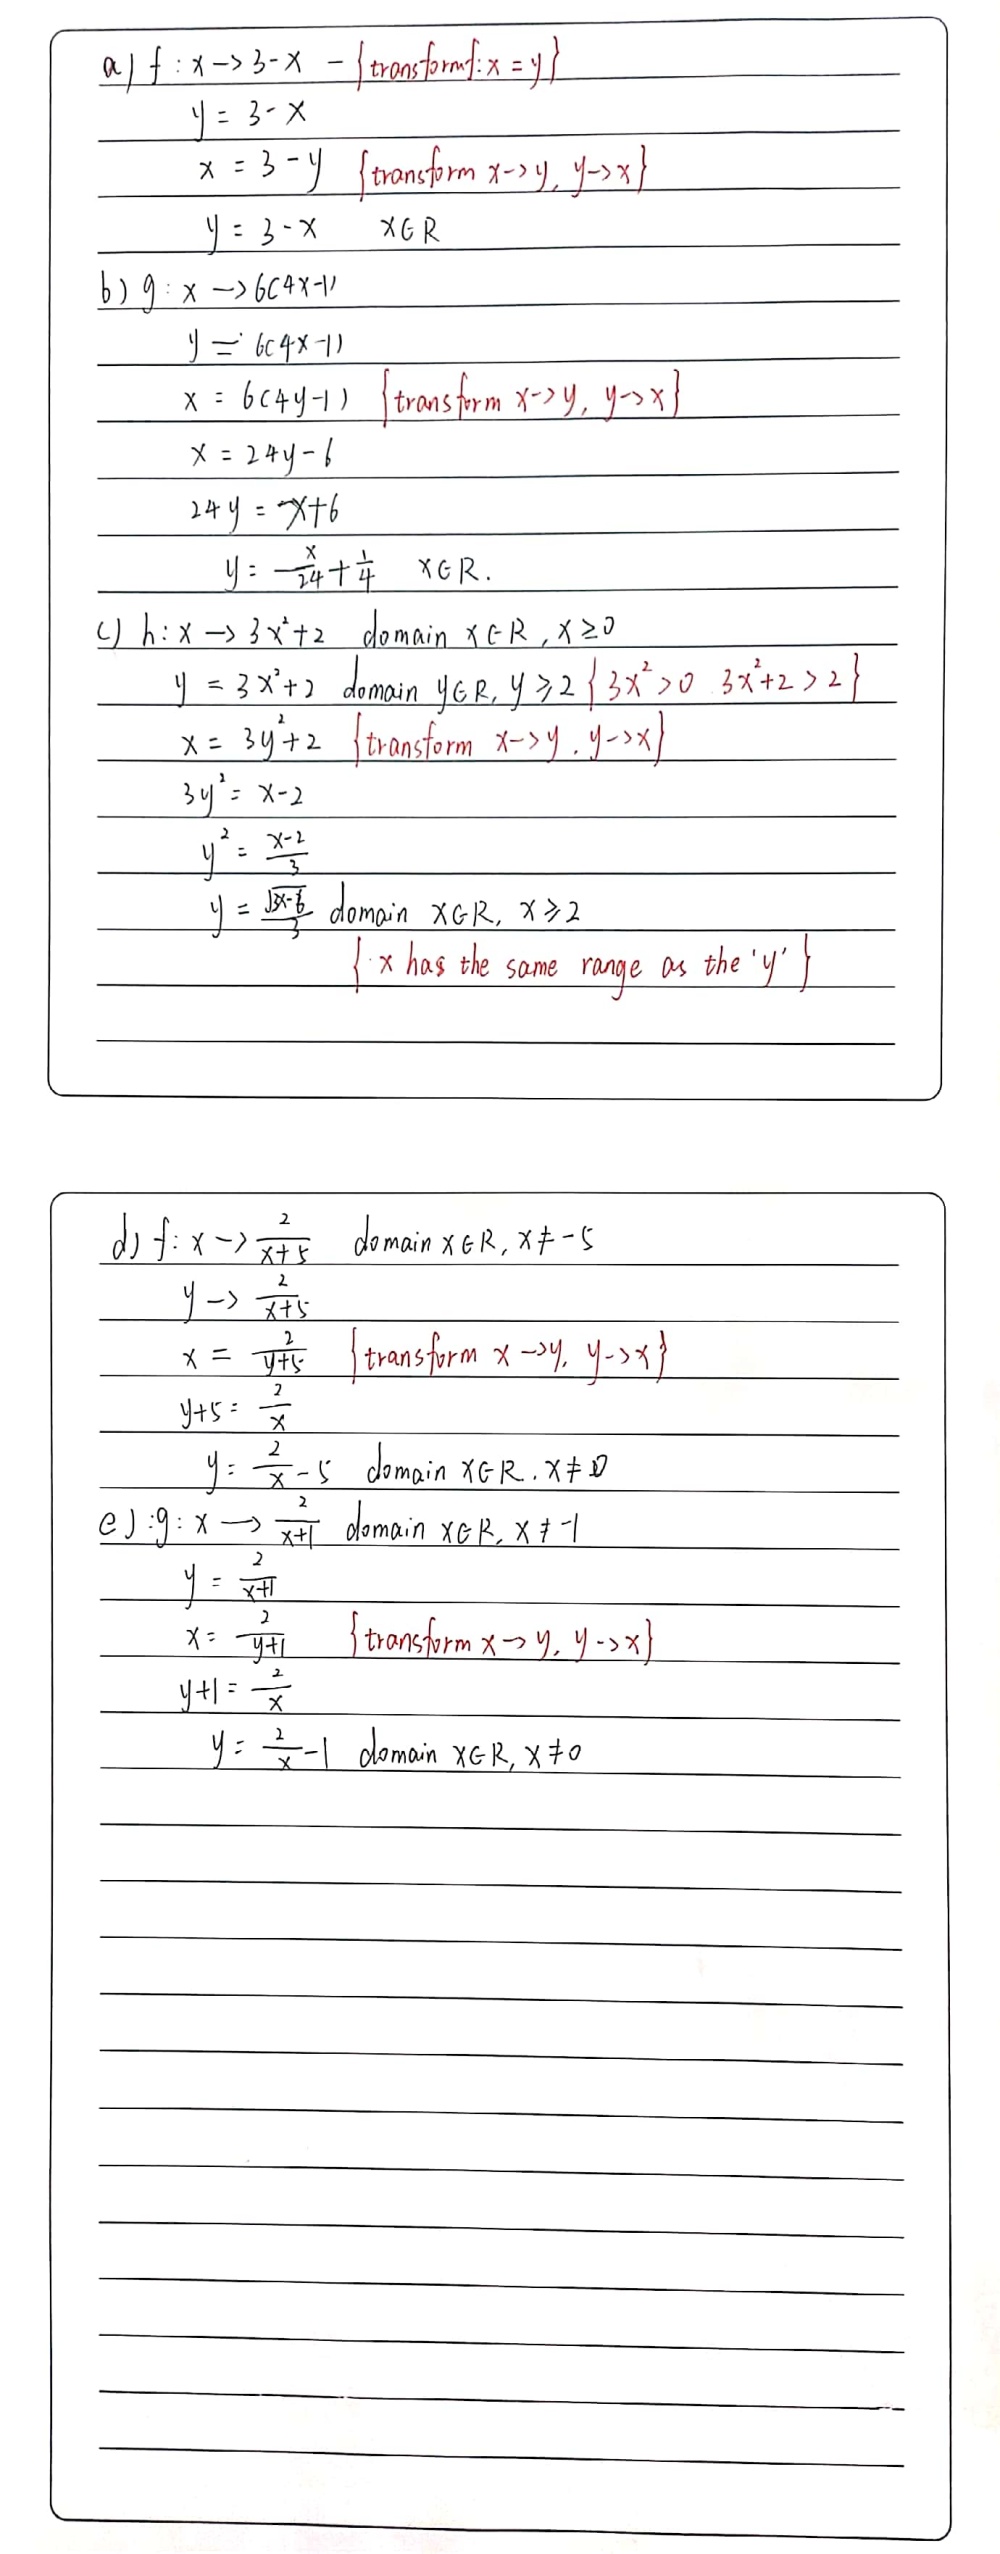 a) f : x -> 3-x - {transformf: x = y}
y = 3-x
x = 3-y {transform x->y, y->x}
y = 3-x x∈R
b) g : x -> 6(4x-1)
y = 6(4x-1)
x = 6(4y-1) {transform x->y, y->x}
x = 24y-6
24y = -x+6
y = -x/24 + 1/4 x∈R.
c) h: x -> 3x²+2 domain x∈R, x≥0
y = 3x²+2 domain y∈R, y≥2 {3x²>0 3x²+2>2}
x = 3y²+2 {transform x->y, y->x}
3y² = x-2
y² = (x-2)/3
y = √(3x-6)/3 domain x∈R, x≥2
{x has the same range as the 'y'}
d) f: x -> 2/(x+5) domain x∈R, x≠-5
y -> 2/(x+5)
x = 2/(y+5) {transform x->y, y->x}
y+5 = 2/x
y = 2/x - 5 domain x∈R. x≠0
e) :g: x -> 2/(x+1) domain x∈R, x≠-1
y = 2/(x+1)
x = 2/(y+1) {transform x->y, y->x}
y+1 = 2/x
y = 2/x -1 domain x∈R, x≠0